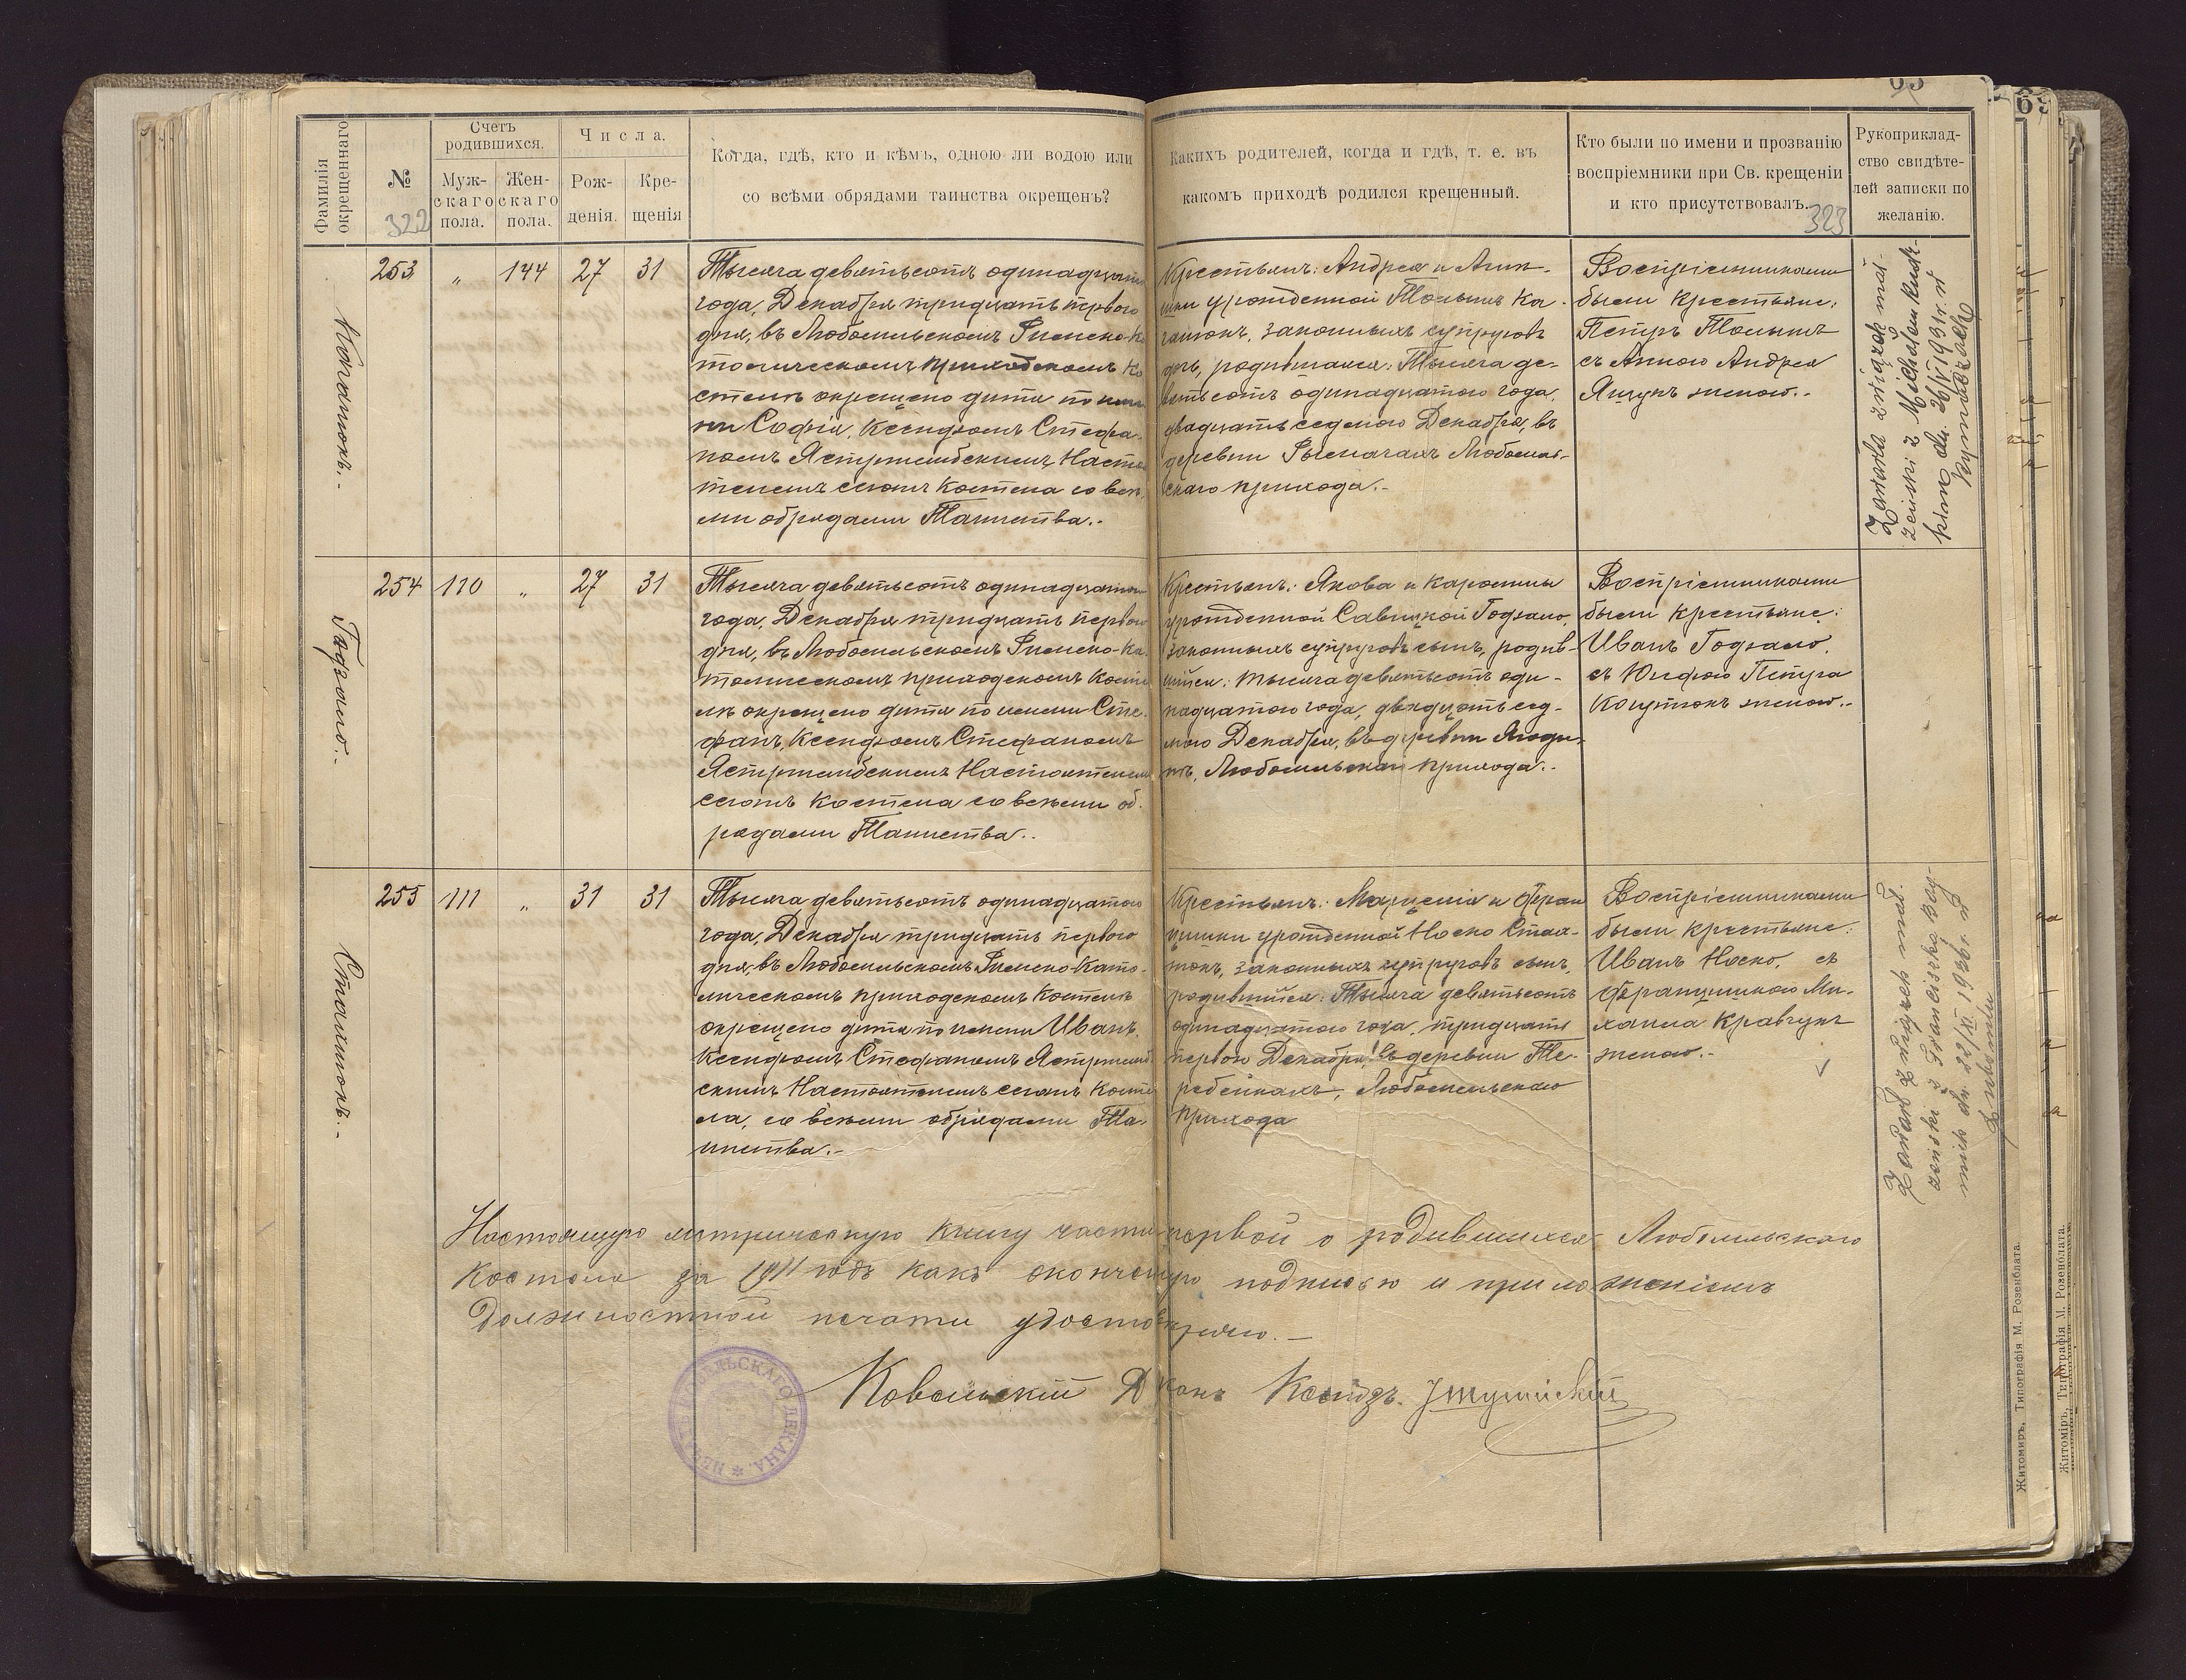 Фамилія окрещеннаго
№
322
Счетъ родившихся.
Мужскаго пола.
Женскаго пола.
Числа.
Рожденія.
Крещенія
Когда, гдѣ, кто и кѣмъ, одною ли водою или
со всѣми обрядами таинства окрещенъ?
Какихъ родителей, когда и гдѣ, т. е. въ
какомъ приходѣ родился крещенный.
Кто были по имени и прозванію
воспріемники при Св. крещеніи
и кто присутствовалъ.
323
Рукоприклад-
ство свидѣте-
лей записки по
желанію.
253 „ 144 27 31
Тысяча девятьсотъ одинадцатаго
года, Декабря тридцать перваго
дня, въ Любомльскомъ Римско-Ка
толическомъ приходскомъ Ко
стелѣ окрещено дитя по име
ни Софія, Ксендзомъ Стефа-
номъ Ястржембскимъ Настоя
телемъ сегожъ Костела со всѣ
ми обрядами Таинства.-
Крестьянъ: Андрея и
урожденной
законныхъ супруговъ
дочь, родившаяся: Тысяча де-
вятьсотъ одинадцатаго года,
двадцать седьмого Декабря, въ
деревни Рымачахъ Любомль-
скаго прихода.-
Воспріемниками
были крестьяне:
Петръ
съ Анною Андрея
Ящукъ женою.-
Zawarła związek mał-
żeński z Michałem
dn. 26/V 1931 r. w
Rymaczach
254 110 „ 27 31
Годзало.-
Тысяча девятьсотъ одинадцатаго
года, Декабря тридцать перваго
дня, въ Любомльскомъ Римско-Ка
толическомъ приходскомъ Косте
лѣ окрещено дитя по имени Сте-
фанъ, Ксендзомъ Стефаномъ
Ястржембскимъ Настоятелемъ
сегожъ Костела со всѣми об-
рядами Таинства..
Крестьянъ: Якова и Каролины
урожденной Савицкой Годзало,
законныхъ супруговъ сынъ, родив-
шійся: Тысяча девятьсотъ оди-
надцатаго года, двадцать сед-
мого Декабря, въ деревни Ягоди-
нѣ, Любомльскаго прихода.-
Воспріемниками
были крестьяне:
Иванъ Годзало,
съ Юзефою Петра
женою.-
255 111 „ 31 31
Тысяча девятьсотъ одинадцатаго
года, Декабря тридцать перваго
дня, въ Любомльскомъ Римско-Като-
лическомъ приходскомъ Костелѣ
окрещено дитя по имени Иванъ,
Ксендзомъ Стефаномъ Ястржемб
скимъ Настоятелемъ сегожъ Косте
ла, со всѣми обрядами Та-
инства.-
Крестьянъ: и Фран
цишки урожденной Носко
законныхъ супруговъ сынъ,
родившійся: Тысяча девятьсотъ
одинадцатаго года, тридцать
перваго Декабря, въ деревни Те-
ребейкахъ, Любомльскаго
прихода
Воспріемниками
были крестьяне:
Иванъ Носко, съ
Францишкою Ми-
хаила Кравчукъ
женою.-
Zawarł związek mał.
żeński z Franciszką
dn. 22/XI 1936 r. w
Lubomlu
Настоящую метрическую книгу части первой о родившихся Любомльскаго
Костела за 1911 годъ какъ оконченную подписью и приложеніемъ
должностной печати удостовѣряю.-
Ковельскій Деканъ Ксендзъ
Житомиръ, Типографія М. Розенблата.
Житоміръ, Типографія М. Розенблата.